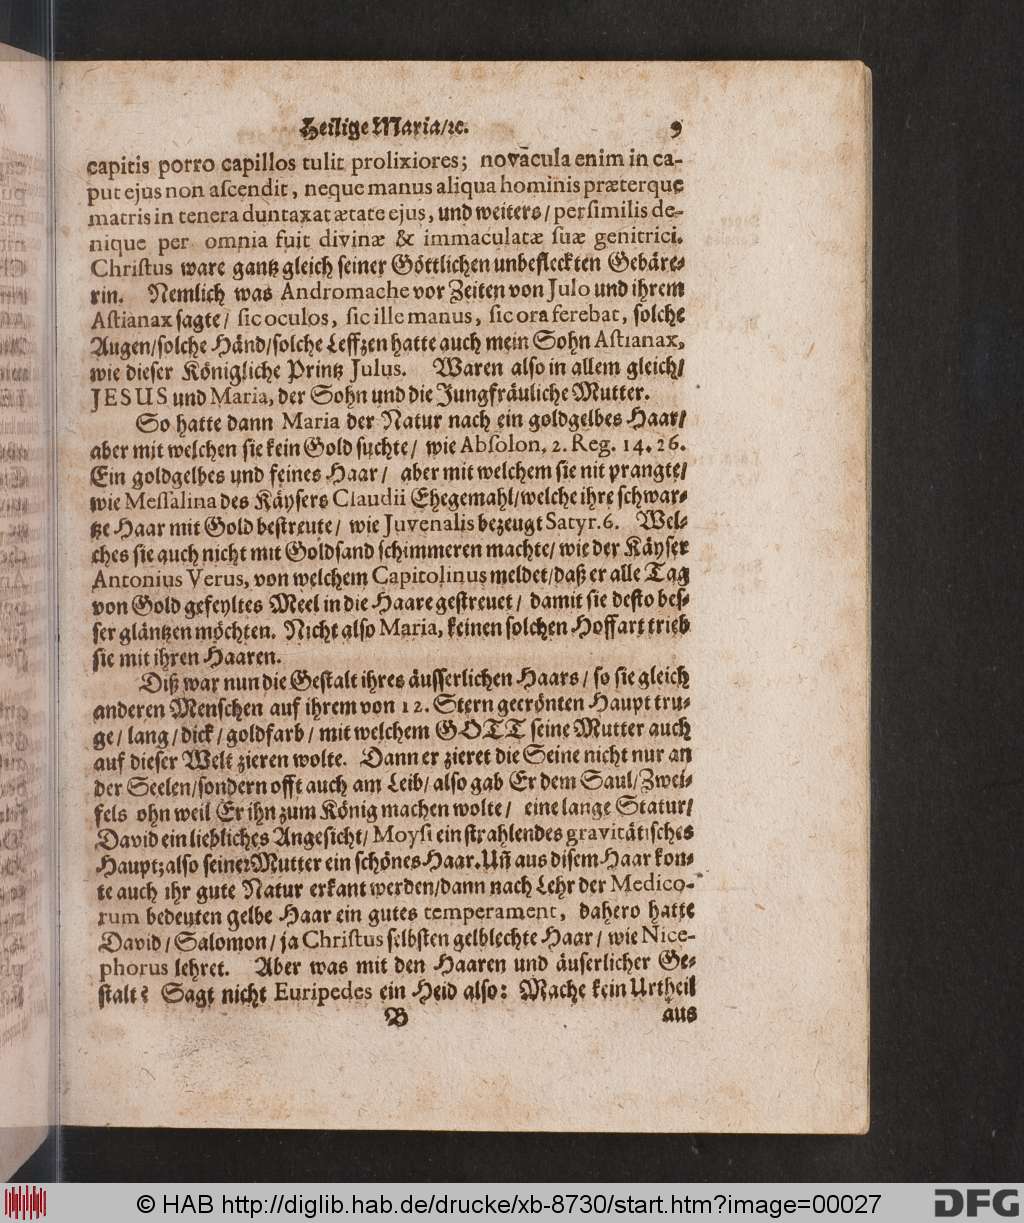 Heilige Maria/ꝛc. 9
capitis porro capillos tulit prolixiores; novācula enim in ca-
put ejus non aſcendit, neque manus aliqua hominis præterque
matris in tenera duntaxat ætate ejus, und weiters/ perſimilis de-
nique per omnia fuit divinæ & immaculatæ ſuæ genitrici.
Chriſtus ware gantz gleich ſeiner Göttlichen unbefleckten Gebäre-
rin. Nemlich was Andromache vor Zeiten von Julo und ihrem
Aſtianax ſagte/ ſic oculos, ſic ille manus, ſic ora ferebat, ſolche
Augen/ſolche Händ/ſolche Leffzen hatte auch mein Sohn Aſtianax,
wie dieſer Königliche Printz Julus. Waren alſo in allem gleich/
JESUS und Maria, der Sohn und die Jungfräuliche Mutter.
So hatte dann Maria der Natur nach ein goldgelbes Haar/
aber mit welchen ſie kein Gold ſuchte/ wie Abſolon, 2. Reg. 14. 26.
Ein goldgelbes und feines Haar/ aber mit welchem ſie nit prangte/
wie Meſſalina des Käyſers Claudii Ehegemahl/welche ihre ſchwar-
tze Haar mit Gold beſtreute/ wie Juvenalis bezeugt Satyr. 6. Wel-
ches ſie auch nicht mit Goldſand ſchimmeren machte/ wie der Käyſer
Antonius Verus, von welchem Capitolinus meldet/daß er alle Tag
von Gold gefeyltes Meel in die Haare geſtreuet/ damit ſie deſto beſ-
ſer gläntzen möchten. Nicht alſo Maria, keinen ſolchen Hoffart trieb
ſie mit ihren Haaren.
Diß war nun die Geſtalt ihres äuſſerlichen Haars/ ſo ſie gleich
anderen Menſchen auf ihrem von 12. Stern gecrönten Haupt tru-
ge/ lang/ dick/ goldfarb/ mit welchem GOTT ſeine Mutter auch
auf dieſer Welt zieren wolte. Dann er zieret die Seine nicht nur an
der Seelen/ſondern offt auch am Leib/ alſo gab Er dem Saul/ Zwei-
fels ohn weil Er ihn zum König machen wolte/ eine lange Statur/
David ein liebliches Angeſicht/ Moyſi ein ſtrahlendes gravitätiſches
Haupt; alſo ſeiner Mutter ein ſchönes Haar. Uñ aus diſem Haar kon-
te auch ihr gute Natur erkant werden/dann nach Lehr der Medico-
rum bedeuten gelbe Haar ein gutes temperament, dahero hatte
David/ Salomon/ ja Chriſtus ſelbſten gelblechte Haar/ wie Nice-
phorus lehret. Aber was mit den Haaren und äuſerlicher Ge-
ſtalt? Sagt nicht Euripedes ein Heid alſo: Mache kein Urtheil
B aus
© HAB http://diglib.hab.de/drucke/xb-8730/start.htm?image=00027
DFG